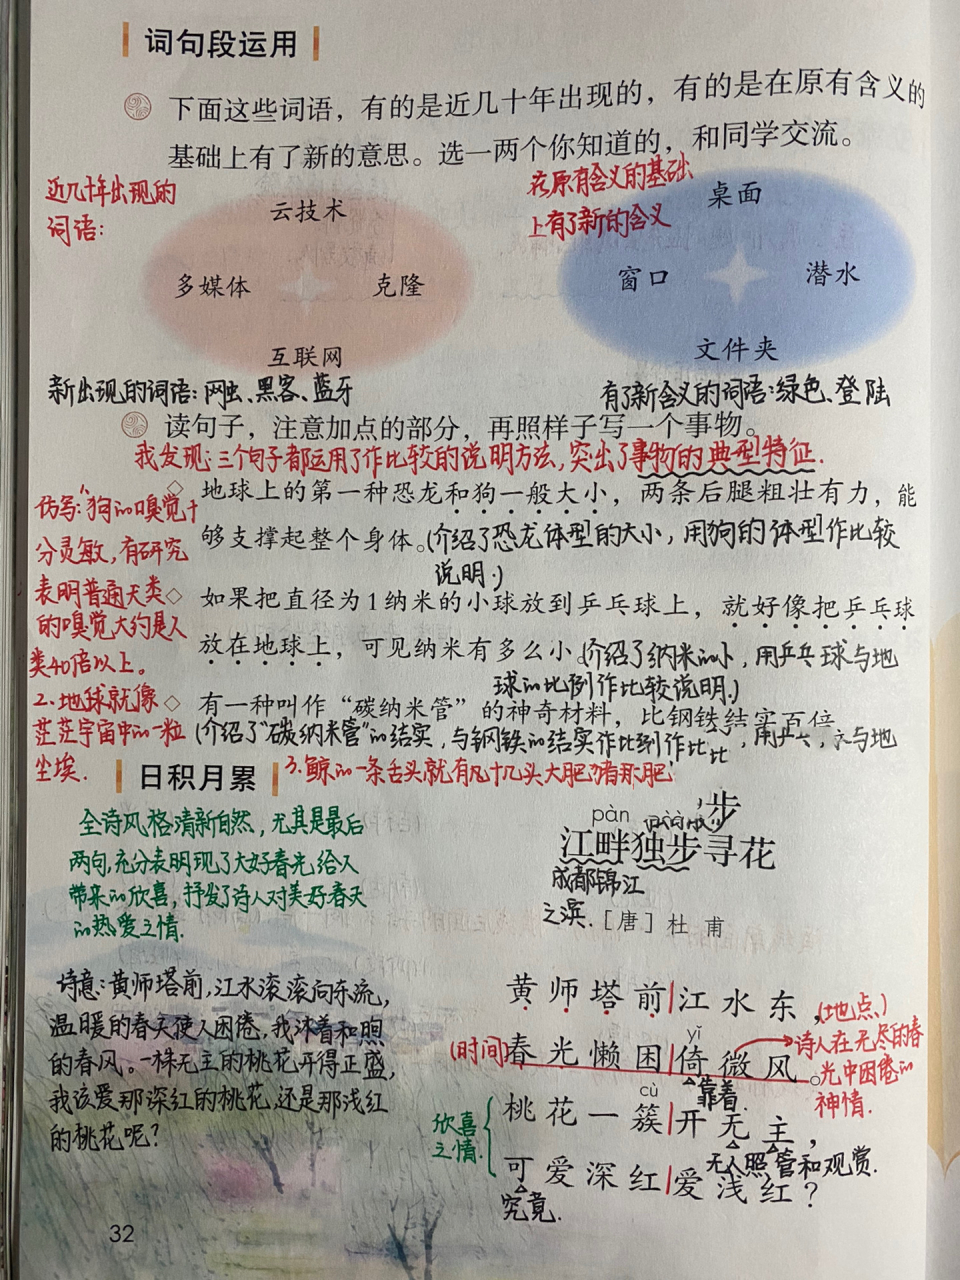 词句段运用
下面这些词语，有的是近几十年出现的，有的是在原有含义的
基础上有了新的意思。选一两个你知道的，和同学交流。
近几十年出现的
词语：
云技术
多媒体 克隆
互联网
在原有含义的基础
上有了新的含义
桌面
窗口 潜水
文件夹
新出现的词语：网虫、黑客、蓝牙
有了新含义的词语：绿色、登陆
读句子，注意加点的部分，再照样子写一个事物。
我发现：三个句子都运用了作比较的说明方法，突出了事物的典型特征.
地球上的第一种恐龙和狗一般大小，两条后腿粗壮有力，能
够支撑起整个身体。(介绍了恐龙体型的大小，用狗的体型作比较
说明.)
如果把直径为1纳米的小球放到乒乓球上，就好像把乒乓球
放在地球上，可见纳米有多么小。(介绍了纳米的小，用乒乓球与地
球的比例作比较说明.)
有一种叫作“碳纳米管”的神奇材料，比钢铁结实百倍
(介绍了“碳纳米管”的结实，与钢铁的结实作比
仿写：1、狗的嗅觉十
分灵敏，有研究
表明普通犬类
的嗅觉大约是人
类40倍以上。
2.地球就像
茫茫宇宙中的一粒
尘埃.
3.鲸的一条舌头就有几十几头大肥猪那肥
日积月累
全诗风格清新自然，尤其是最后
两句，充分表明现了大好春光给人
带来的欣喜，抒发了诗人对美好春天
的热爱之情.
pàn
步
江畔独步寻花
成都锦江
之滨.
［唐］杜 甫
诗意：黄师塔前，江水滚滚向东流，
温暖的春天使人困倦，我沐着和煦
的春风。一株无主的桃花开得正盛，
我该爱那深红的桃花，还是那浅红
的桃花呢？
黄师塔前|江水东，
(地点)
yǐ
(时间)
春光懒困|倚微风。
靠着.
诗人在无尽的春
光中困倦的
神情.
cù
桃花一簇|开无主，
无人照管和观赏.
可爱深红|爱浅红？
究竟.
欣喜
之情.
32